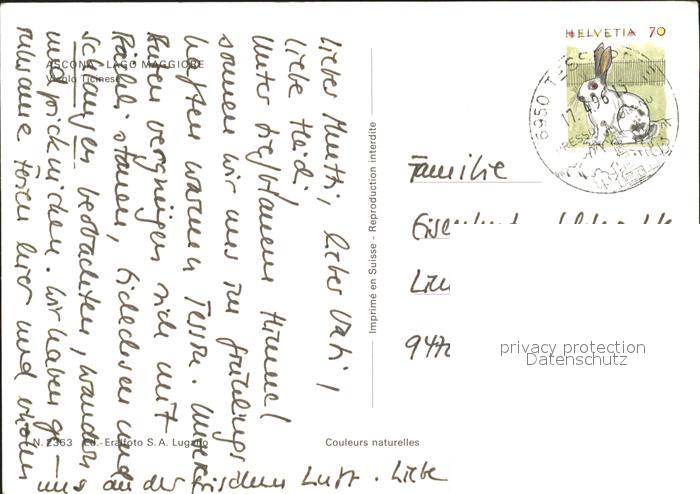 ASCONA - LAGO MAGGIORE
Vicolo Ticinese
Lieber Mutti, lieber Vati,
liebe Heidi,
Unter tiefblauem Himmel
sonnen wir uns im frühlings-
haften warmen Tessin. Unsere
Buben vergnügen sich mit
Bächli stauen, Eidechsen und
Schlangen beobachten, wandern
und picknicken. Wir haben ge-
ruhsame Ferien hier und
uns an der frischen Luft. Liebe
N. 2363 Ed.-Eralfoto S.A. Lugano
Couleurs naturelles
Imprimé en Suisse - Reproduction interdite
HELVETIA 70
6950 TESSERETE
17.4.96
Familie
947
privacy protection
Datenschutz